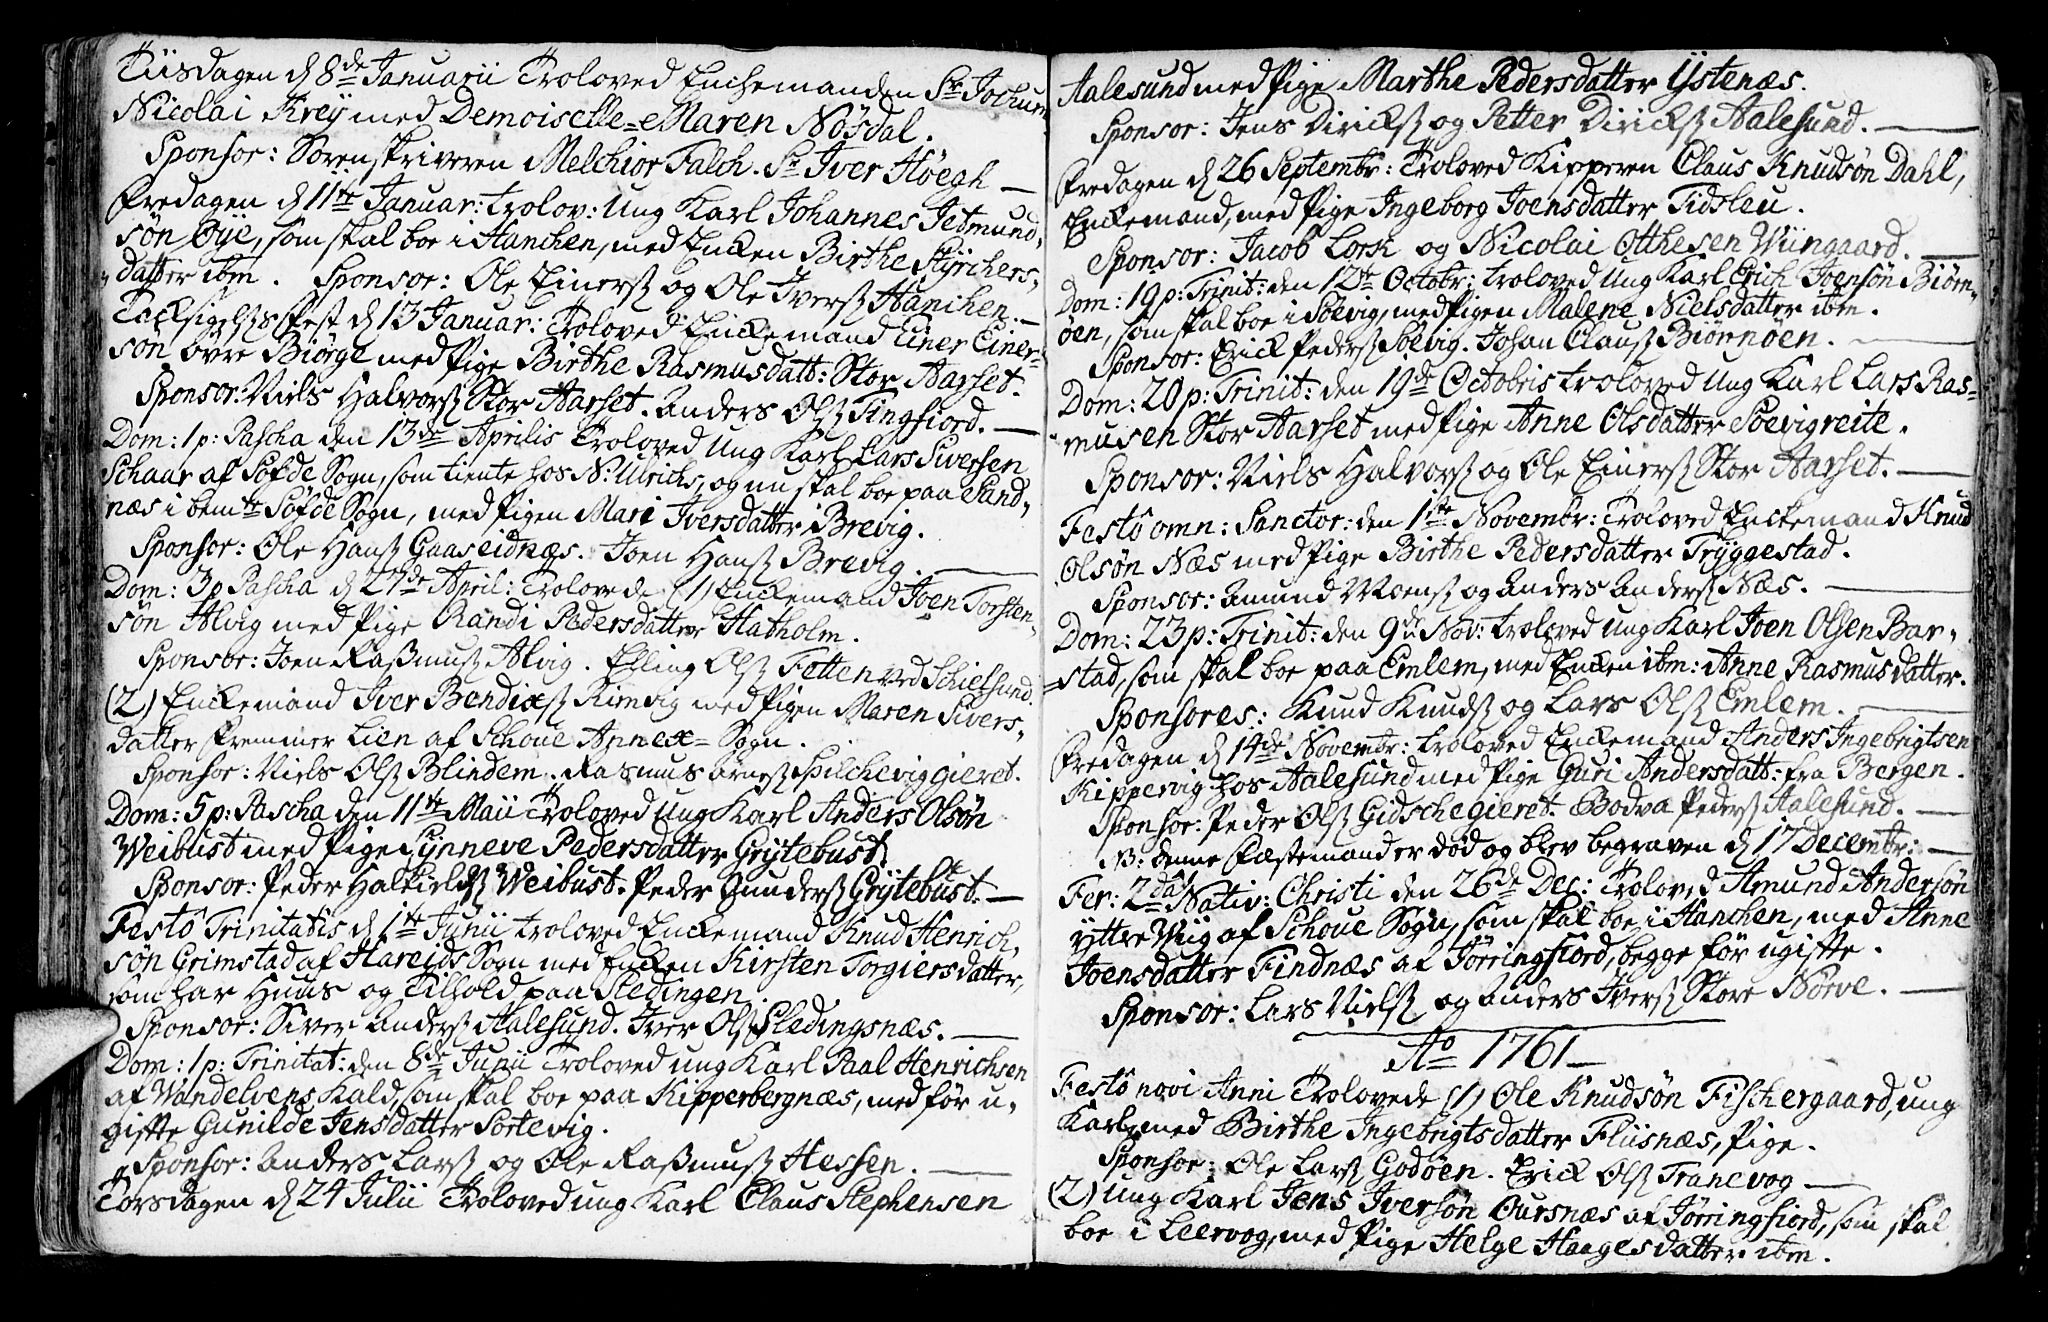 Tiisdagen d 8de Januarii Troloved Enchemanden Sr Jochum
Nicolai Krey med Demoiselle Maren Nøsdal.
Sponsor: Sorenskriveren Melchior Falch. Sr Iver Høegh
Fredagen d 11te Januar: trolov: Ung Karl Johannes Jetmund-
søn Øye, som skal boe i Hanchen, med Encken Birthe Styrchers-
datter ibm. Sponsor: Ole Einersz og Ole Iversz Hanchen.
Tacksigelses Fest d 13 Januar: Troloved Enckemand Einer Einer-
søn øvre Biørge med Pige Birthe Rasmusdatt: Stor Aarset.
Sponsor: Niels Halvorsz Stor Aarset. Anders Olsz Tingfiord.
Dom: 1 p: Pascha den 13de Aprilis Troloved Ung Karl Lars Siversen
Schaar af Søfde Sogn, som tiente hos N. Ulrichs, og nu skal boe paa Sand-
næs i bemte Søfde Sogn, med Pigen Mari Iversdatter Brevig.
Sponsor: Ole Hansz Gaaseidnæs. Joen Hansz Brevig.
Dom: 3 p Pascha d 27de April: Trolovede (1) Enckemand Joen Torsten-
søn Alvig med Pige Randi Pedersdatter Hatholm.
Sponsor: Joen Rasmusz Alvig. Elling Olsz Fetten ved Schielsund.
(2) Enckemand Iver Bendixsz Rimvig med Pigen Maren Sivers-
datter Fremmer Lien af Schoue Annex-Sogn.
Sponsor: Niels Olsz Blindem. Rasmus Arnesz Spilchevig gieret.
Dom: 5 p: Pascha den 11te Maii Troloved Ung Karl Anders Olsøn
Weibust med Pige Synneve Pedersdatter Grytebust.
Sponsor: Peder Halkieldsz Weibust. Peder Gundersz Grytebust.
Festô Trinitatis d 1te Junii troloved Enckemand Knud Henrich-
søn Grimstad af Hareids Sogn med Encken Kirsten Torgiersdatter,
som har Huus og Tilhold paa Sledingen.
Sponsor: Siver Andersz Aalesund. Iver Olsz Sledingsnæs.
Dom: 1 p: Trinitat: den 8de Junii Troloved ung Karl Paal Henrichsen
af Wandelvens Kald, som skal boe paa Kipperbergnæs, med før u-
gifte Gunilde Jensdatter Sortevig.
Sponsor: Anders Larsz og Ole Rasmusz Hessen.
Torsdagen d 24 Julii Troloved ung Karl Claus Stephensen
Aalesund med Pige Marthe Pedersdatter Ystenæs.
Sponsor: Jens Diricksz og Petter Diricksz Aalesund.
Fredagen d 26 Septembr: Troloved Kipperen Claus Knudsøn Dahl,
Enckemand, med Pige Ingeborg Joensdatter Tidsleu.
Sponsor: Jacob Lorck og Nicolai Otthesen Wiingaard.
Dom: 19 p: Trinit: den 12te Octobr: troloved Ung Karl Erich Joensøn Biørn-
øen, som skal boe i Søevig, med Pigen Malene Nielsdatter ibm.
Sponsor: Erick Pedersz Søevig. Johan Clausz Biørnøen.
Dom: 20 p: Trinit: den 19de Octobris troloved Ung Karl Lars Ras-
musen Stor Aarset med Pige Anne Olsdatter Søevigreite.
Sponsor: Niels Halvorsz og Ole Einersz Stor Aarset.
Festô omn: Sanctor: den 1te Novembr: Troloved Enckemand Knud
Olsøn Næs med Pige Birthe Pedersdatter Tryggestad.
Sponsor: Amund Moensz og Anders Andersz Næs.
Dom: 23 p: Trinit: den 9de Nov: troloved ung Karl Joen Olsen Bar-
stad, som skal boe paa Emlem, med Encken ibm: Anne Rasmusdatter.
Sponsores: Knud Knudsz og Lars Olsz Emlem.
Fredagen d 14de Novembr: troloved Enckemand Anders Ingebrigtsen
Kippervig hos Aalesund med Pige Guri Andersdatt: fra Bergen.
Sponsor: Peder Olsz Gidschegieret. Bodva Pedersz Aalesund.
NB: denne Fæstemand er død og blev begraven d 17 Decembr:
Fer: 2da Nativ: Christi den 26de Dec: Troloved Amund Andersøn
Yttre Wiig af Schoue Sogn, som skal boe i Hanchen, med Anne
Joensdatter Findnæs af Jørringfiord, begge før ugifte.
Sponsor: Lars Nielsz og Anders Iversz Store Nørve.
Ao 1761
Festô novi Anni Trolovede (1) Ole Knudsøn Fischergaard, ung
Karl, med Birthe Ingebrigtsdatter Fliisnæs, Pige.
Sponsor: Ole Larsz Godøen. Erick Olsz Tranevog
(2) Ung Karl Jens Iversøn Oursnæs af Jørringfiord, som skal
boe i Leervog, med Pige Helge Haagesdatter ibm.